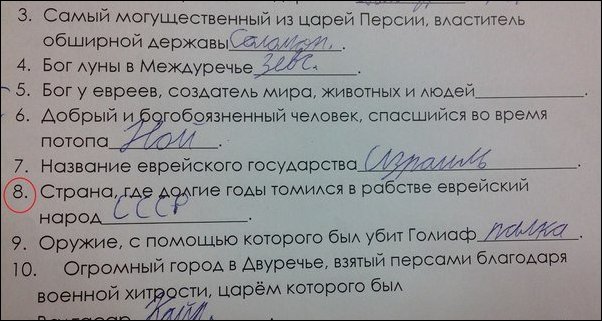 3. Самый могущественный из царей Персии, властитель
обширной державы Соломон.
4. Бог луны в Междуречье Зевс.
5. Бог у евреев, создатель мира, животных и людей____________.
6. Добрый и богобоязненный человек, спасшийся во время
потопа Ной.
7. Название еврейского государства Израиль
8. Страна, где долгие годы томился в рабстве еврейский
народ СССР.
9. Оружие, с помощью которого был убит Голиаф палка.
10. Огромный город в Двуречье, взятый персами благодаря
военной хитрости, царём которого был